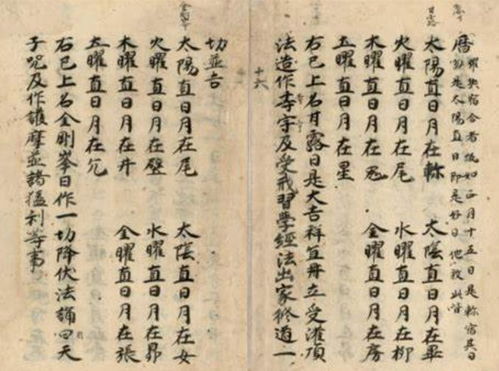 曆
曜與宿合者假如正月十五日是軫宿其日
太陽直日即是好日他效此
太陽直日月在軫 太陰直日月在畢
火曜直日月在尾 水曜直日月在柳
木曜直日月在鬼 金曜直日月在房
土曜直日月在星
右已上名甘露日是大吉祥宜冊立受灌頂
法造作寺宇及受戒習學經法出家修道一
十六
切並吉
太陽直日月在尾 太陰直日月在女
火曜直日月在壁 水曜直日月在昴
木曜直日月在井 金曜直日月在張
土曜直日月在亢
右已上名金剛峯日作一切降伏法誦日天
子呪及作護摩並諸猛利等事